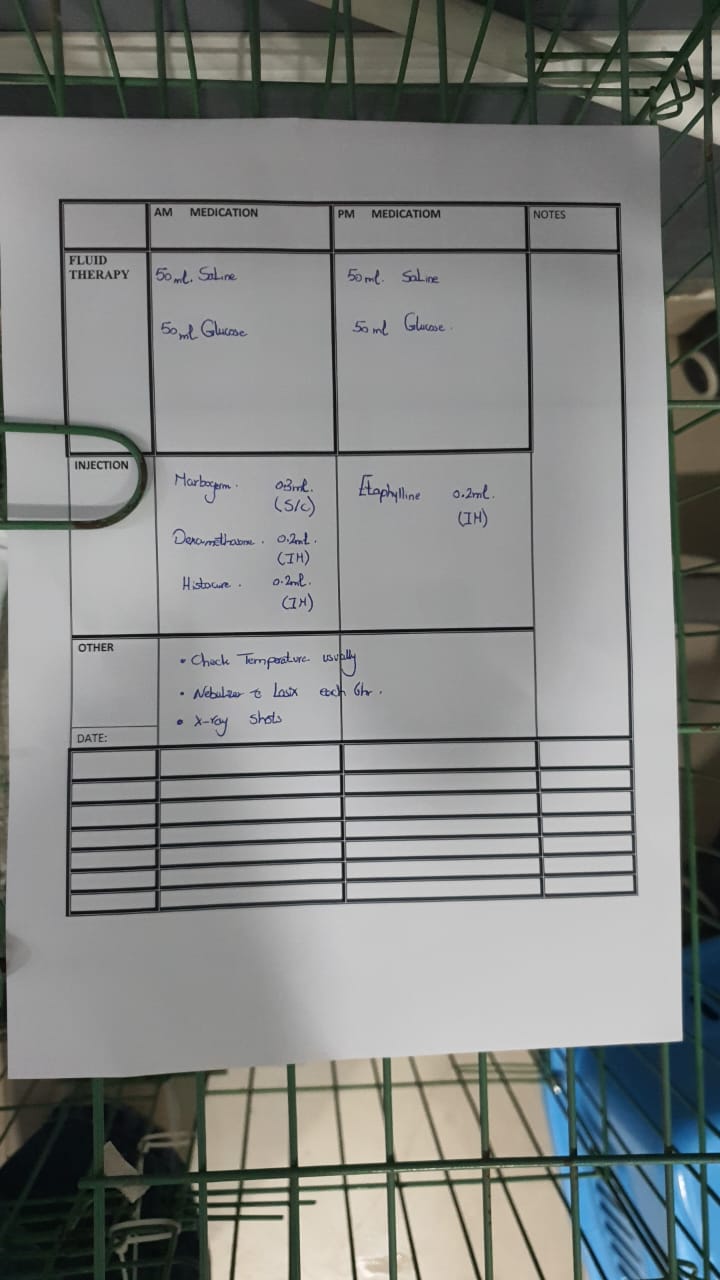 AM MEDICATION
PM MEDICATIOM
NOTES
FLUID
THERAPY
50 ml. Saline
50 ml Glucose
50 ml. Saline
50 ml Glucose.
INJECTION
Marbogem. 0.3ml.
(S/C)
Dexamethasone. 0.2ml.
(IM)
Histocure. 0.2ml.
(IM)
Etaphylline 0.2ml.
(IM)
OTHER
• Check Temperature usually
• Nebulizer c̄ Lasix each 6hr.
• X-ray shots
DATE: